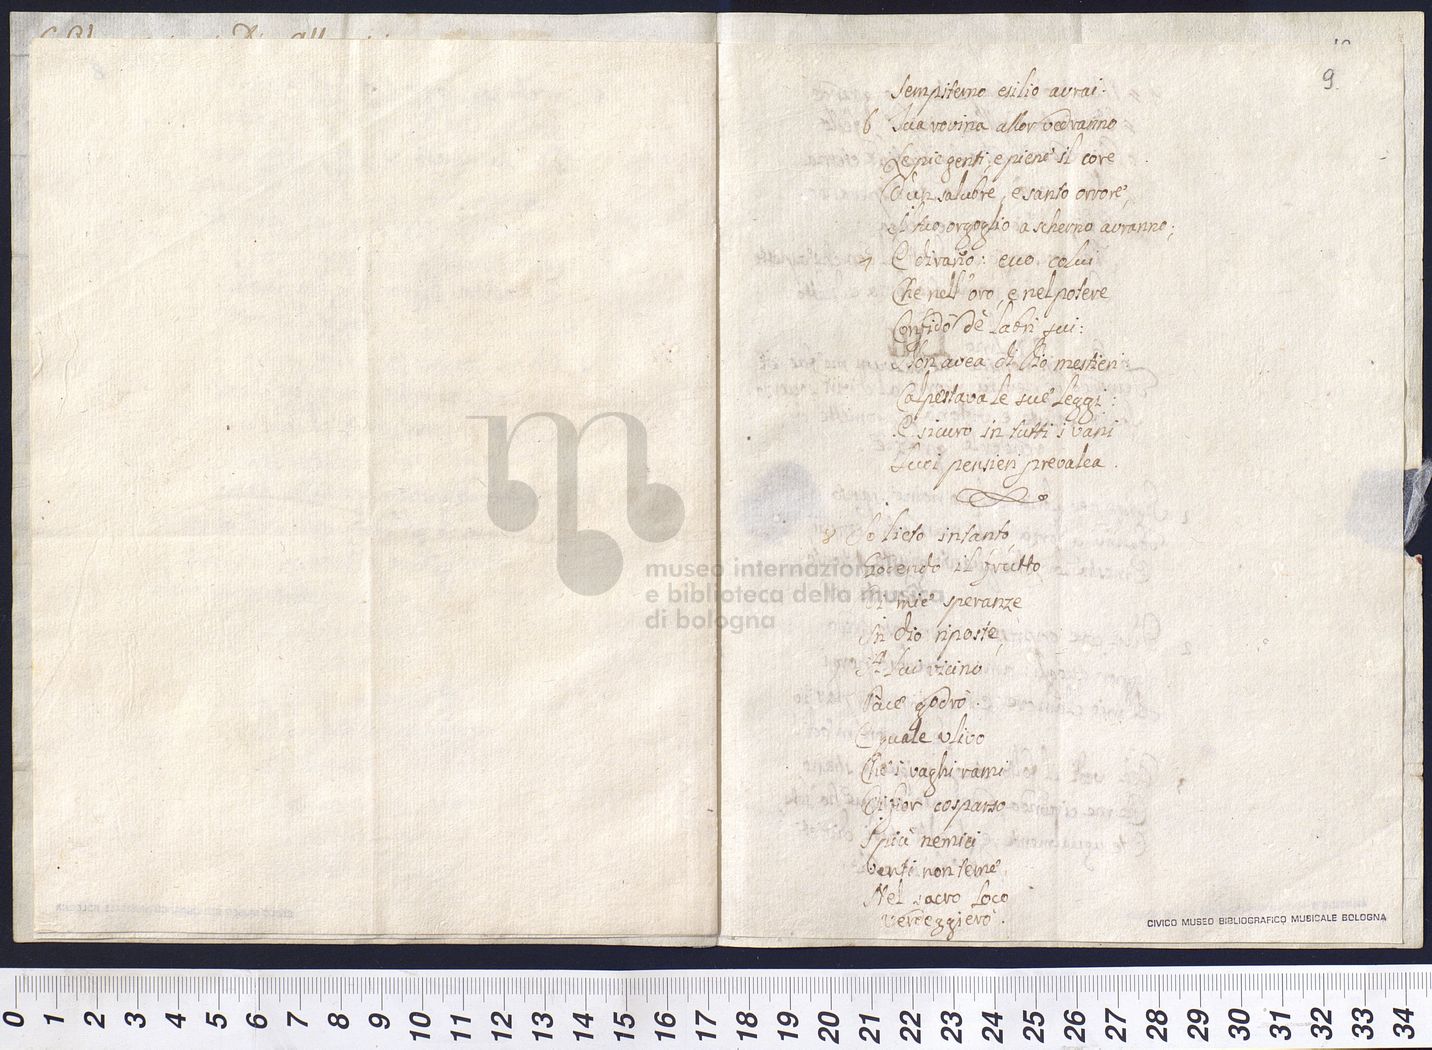 9
Sempiterno esilio avrai.
6 Tua rovina allor vedranno
Le pie genti, e piene il core
D'un salubre, e santo orrore,
Il tuo orgoglio a scherno avranno;
7 E diranno: ecco colui
Che nell'oro, e nel potere
Confidò de' Labri sui:
Non avea di Dio mestieri
Calpestava le sue Leggi:
E sicuro in tutti i vani
Suoi pensieri prevalea.
8 Io lieto intanto,
Godendo il frutto
Di mie speranze
In Dio riposte,
A Lui vicino
Pace godrò.
E quale ulivo
Che i vaghi rami
Di fior cosparso
I più nemici
Venti non teme,
Nel sacro Loco
Verdeggierò.
museo internazionale
e biblioteca della musica
di bologna
CIVICO MUSEO BIBLIOGRAFICO MUSICALE BOLOGNA
0 1 2 3 4 5 6 7 8 9 10 11 12 13 14 15 16 17 18 19 20 21 22 23 24 25 26 27 28 29 30 31 32 33 34